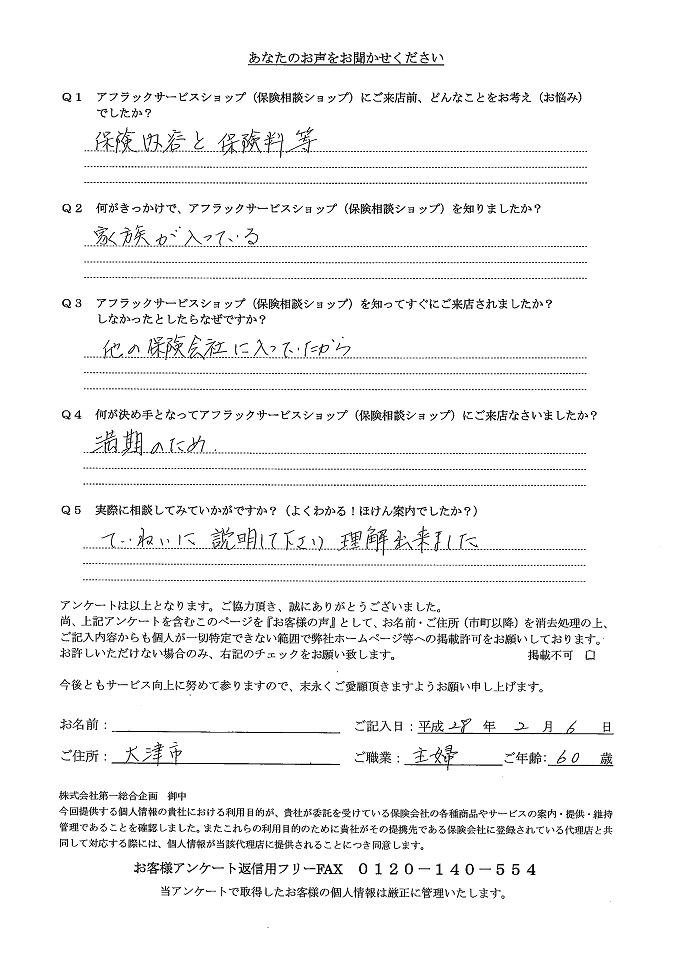 あなたのお声をお聞かせください
Q1 アフラックサービスショップ(保険相談ショップ)にご来店前、どんなことをお考え(お悩み)
でしたか?
保険内容と保険料等
Q2 何がきっかけで、アフラックサービスショップ(保険相談ショップ)を知りましたか?
家族が入っている
Q3 アフラックサービスショップ(保険相談ショップ)を知ってすぐにご来店されましたか?
しなかったとしたらなぜですか?
他の保険会社に入っていたから
Q4 何が決め手となってアフラックサービスショップ(保険相談ショップ)にご来店なさいましたか?
満期のため.
Q5 実際に相談してみていかがですか?(よくわかる!ほけん案内でしたか?)
ていねいに説明して下さり理解出来ました
アンケートは以上となります。ご協力頂き、誠にありがとうございました。
尚、上記アンケートを含むこのページを『お客様の声』として、お名前・ご住所(市町以降)を消去処理の上、
ご記入内容からも個人が一切特定できない範囲で弊社ホームページ等への掲載許可をお願いしております。
お許しいただけない場合のみ、右記のチェックをお願い致します。 掲載不可 □
今後ともサービス向上に努めて参りますので、末永くご愛顧頂きますようお願い申し上げます。
お名前: ご記入日:平成28年2月6日
ご住所:大津市 ご職業:主婦 ご年齢:60歳
株式会社第一総合企画 御中
今回提供する個人情報の貴社における利用目的が、貴社が委託を受けている保険会社の各種商品やサービスの案内・提供・維持
管理であることを確認しました。またこれらの利用目的のために貴社がその提携先である保険会社に登録されている代理店と共
同して対応する際には、個人情報が当該代理店に提供されることにつき同意します。
お客様アンケート返信用フリーFAX 0120-140-554
当アンケートで取得したお客様の個人情報は厳正に管理いたします。